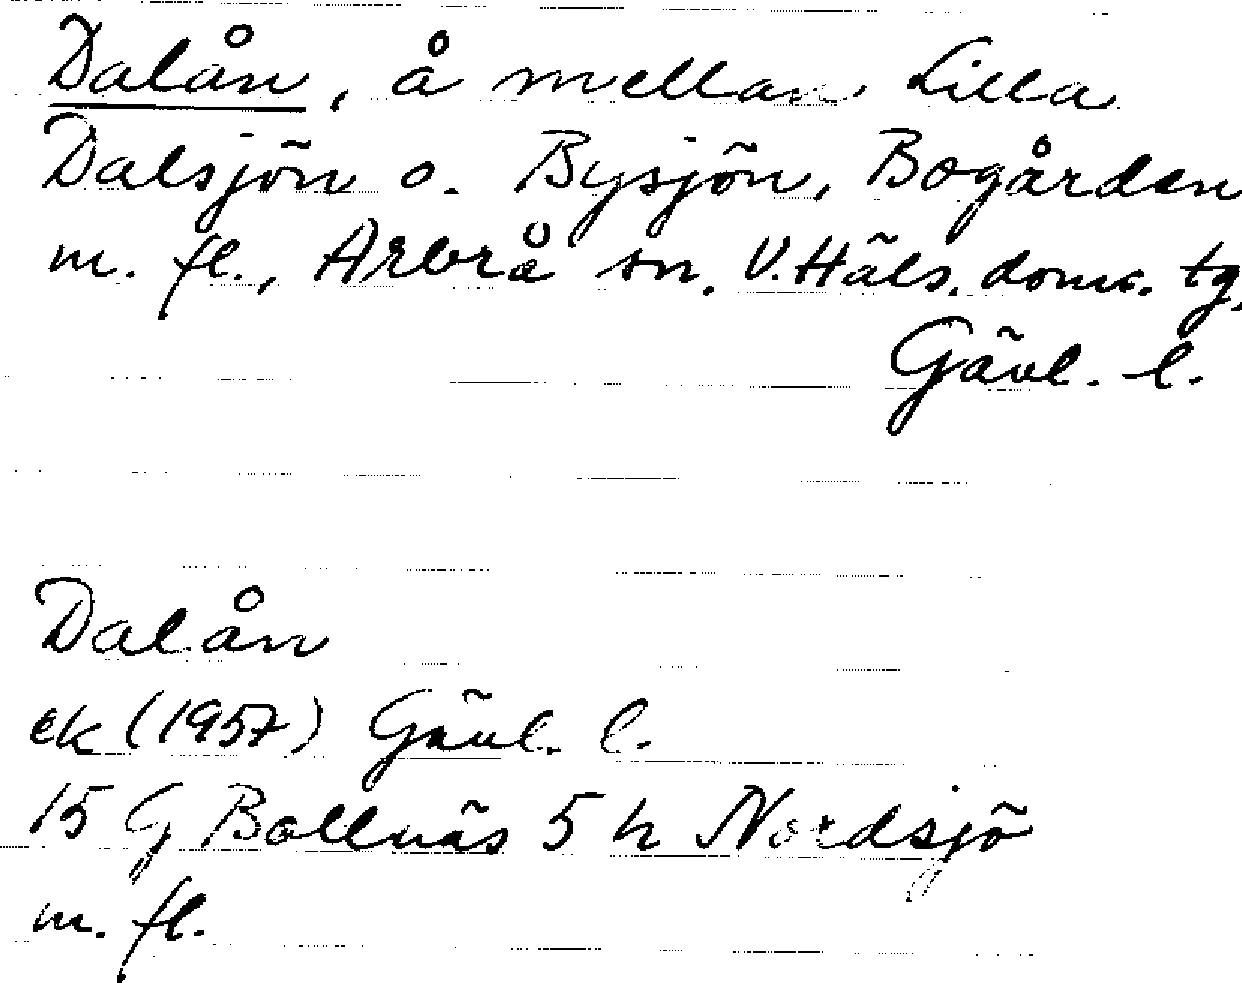 Dalån, å mellan Lilla
Dalsjön o. Bysjön, Bogården
m. fl., Arbrå sn. V. Häls. doms. tg,
Gävl. l.
Dalån
ek (1957) Gävl. l.
15 G Bollnäs 5 h Nordsjö
m. fl.